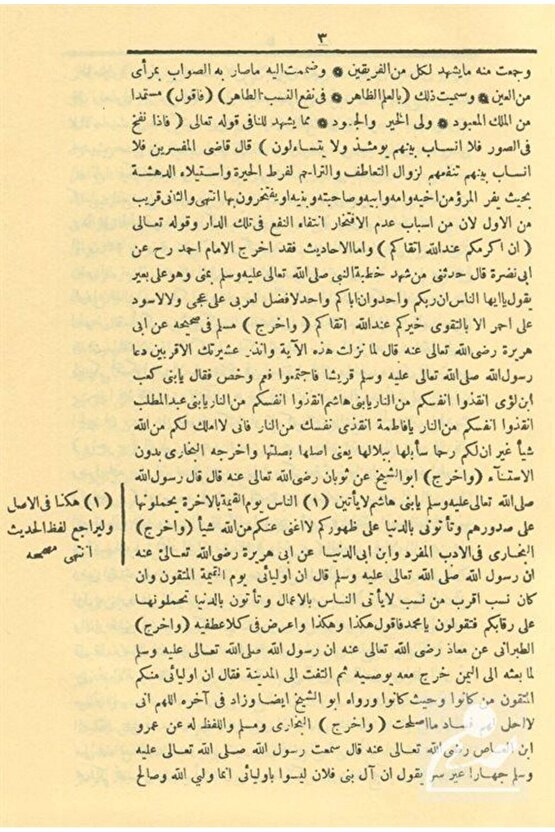 ٣
وجمعت منه مايشهد لكل من الفريقين * وضممت اليه ماصار به الصواب بمرأى
من العين * وسميت ذلك (بالعلم الظاهر * فى نفع النسب الطاهر) (فاقول) مستمدا
من الملك المعبود * ولى الخير والجود * مما يشهد للنافى قوله تعالى (فاذا نفخ
فى الصور فلا انساب بينهم يومئذ ولا يتساءلون) قال قاضى المفسرين فلا
انساب بينهم تنفعهم لزوال التعاطف والتراحم لفرط الحيرة واستيلاء الدهشة
بحيث يفر المرؤ من اخيه وامه وابيه وصاحبته وبنيه او يفتخرون بها انتهى والثانى قريب
من الاول لان من اسباب عدم الافتخار انتفاء النفع فى تلك الدار وقوله تعالى
(ان اكرمكم عندالله اتقاكم) واما الاحاديث فقد اخرج الامام احمد رح عن
ابى نضرة قال حدثنى من شهد خطبة النبي صلى الله تعالى عليه وسلم بمنى وهو على بعير
يقول ياايها الناس ان ربكم واحد وان اباكم واحد لافضل لعربى على عجمى ولا لاسود
على احمر الا بالتقوى خيركم عندالله اتقاكم (واخرج) مسلم فى صحيحه عن ابى
هريرة رضى الله تعالى عنه قال لما نزلت هذه الآية وانذر عشيرتك الاقربين دعا
رسول الله صلى الله تعالى عليه وسلم قريشا فاجتمعوا فعم وخص فقال يابنى كعب
ابن لؤى انقذوا انفسكم من النار يابنى هاشم انقذوا انفسكم من النار يابنى عبدالمطلب
انقذوا انفسكم من النار يافاطمة انقذى نفسك من النار فانى لااملك لكم من الله
شيأ غير ان لكم رحما سأبلها ببلالها يعنى اصلها بصلتها واخرجه البخارى بدون
الاستثناء (واخرج) ابو الشيخ عن ثوبان رضى الله تعالى عنه قال قال رسول الله
صلى الله تعالى عليه وسلم يابنى هاشم لايأتين (١) الناس يوم القيمة بالاخرة يحملونها
على صدورهم وتأتونى بالدنيا على ظهوركم لااغنى عنكم من الله شيأ (واخرج)
البخارى فى الادب المفرد وابن ابى الدنيا عن ابى هريرة رضى الله تعالى عنه
ان رسول الله صلى الله تعالى عليه وسلم قال ان اوليائى يوم القيمة المتقون وان
كان نسب اقرب من نسب لايأتى الناس بالاعمال وتأتون بالدنيا تحملونها
على رقابكم فتقولون يامحمد فاقول هكذا وهكذا واعرض فى كلا عطفيه (واخرج)
الطبرانى عن معاذ رضى الله تعالى عنه ان رسول الله صلى الله تعالى عليه وسلم
لما بعثه الى اليمن خرج معه يوصيه ثم التفت الى المدينة فقال ان اوليائى منكم
المتقون من كانوا وحيث كانوا ورواه ابو الشيخ ايضا وزاد فى آخره اللهم انى
لااحل لهم فساد مااصلحت (واخرج) البخارى ومسلم واللفظ له عن عمرو
ابن العاص رضى الله تعالى عنه قال سمعت رسول الله صلى الله تعالى عليه
وسلم جهارا غير سر يقول ان آل بنى فلان ليسوا باوليائى انما وليي الله وصالح
(١) هكذا فى الاصل
وليراجع لفظ الحديث
انتهى مصححه